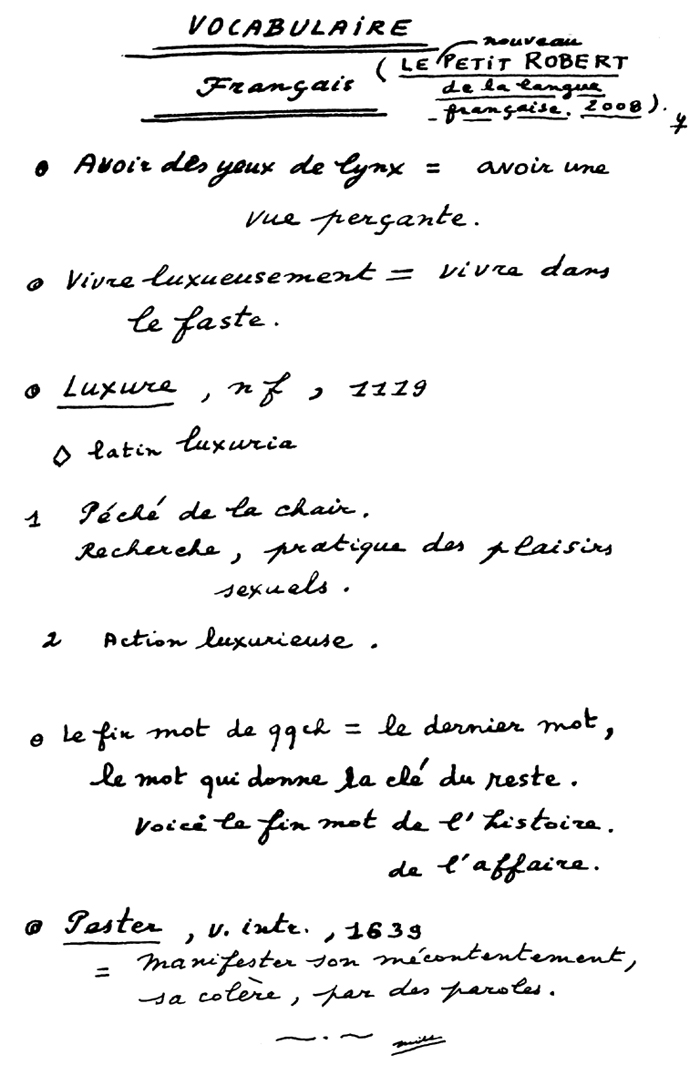 VOCABULAIRE
Français (LE nouveau PETIT ROBERT
de la langue
française. 2008).
• Avoir des yeux de lynx = avoir une
vue perçante.
• Vivre luxueusement = vivre dans
le faste.
• Luxure, nf, 1119
◊ latin luxuria
1 Péché de la chair.
Recherche, pratique des plaisirs
sexuels.
2 Action luxurieuse.
• Le fin mot de qqch = le dernier mot,
le mot qui donne la clé du reste.
Voici le fin mot de l'histoire.
de l'affaire.
• Pester, v. intr., 1639
= manifester son mécontentement,
sa colère, par des paroles.